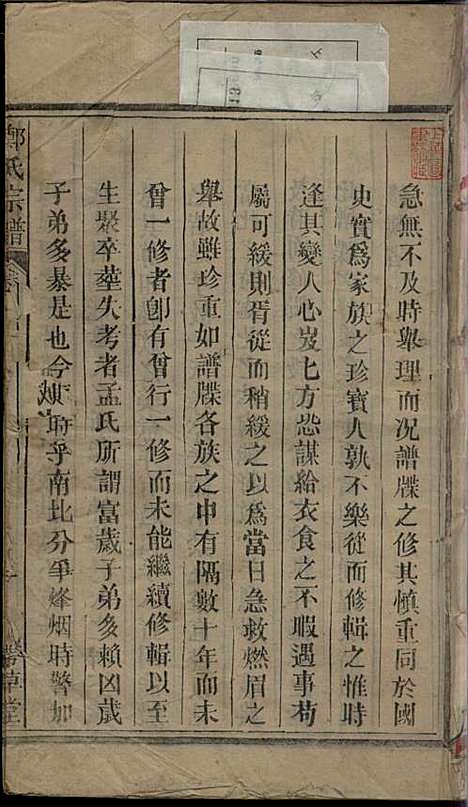 急無不及時舉理而況譜牒之修其慎重同於國
史實爲家族之珍寶人孰不樂從而修輯之惟時
逢其變人心岌七方恐謀給衣食之不暇遇事苟
屬可緩則胥從而稍緩之以爲當日急救燃眉之
舉故雖珍重如譜牒各族之中有隔數十年而未
曾一修者卽有曾行一修而未能繼續修輯以至
生聚卒塟失考者孟氏所謂富歲子弟多賴凶歲
子弟多暴是也今 時乎南北分爭烽烟時警加
鄭氏宗譜
草堂